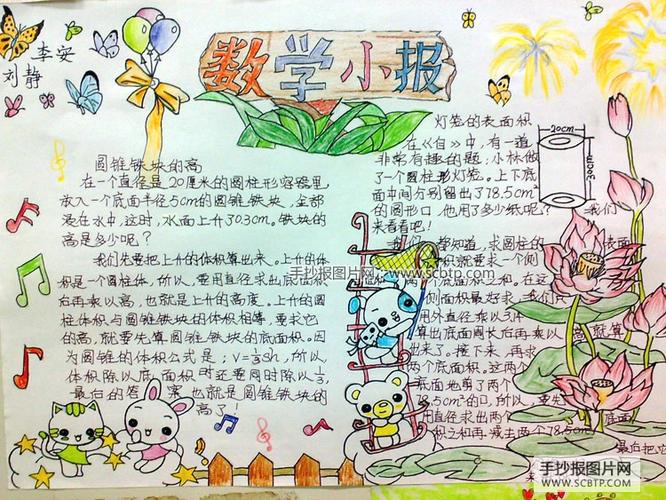 李安
刘静
数学小报
圆锥铁块的高
在一个直径是20厘米的圆柱形容器里
放入一个底面半径5cm的圆锥铁块，全部
浸在水中，这时，水面上升了0.3cm。铁块的
高是多少呢？
我们先要把上升的体积算出来。上升的体
积是一个圆柱体，所以，要用直径求出底面积
后再乘以高，也就是上升的高度。上升的圆
柱体积与圆锥铁块的体积相等，要求它
的高，就要先算圆锥铁块的底面积。因
为圆锥的体积公式是：V=⅓sh，所以，
体积除以底面积时还要同时除以⅓，
最后的答案也就是圆锥铁块的
高了！
灯笼的表面积
在《自》中，有一道
非常有趣的题：小林做
了一个圆柱形灯笼。上下底
面中间分别留出了78.5cm²
的圆形口，他用了多少纸呢？我们
来看看吧！
20cm
30cm
知道，求圆柱的表面
积就要求一个侧
两个底面积之和。在这
侧面积最好求，我们只
用外直径乘以3.14
算出底面周长后再乘以高就算
出来了。接下来，再求
两个底面积。这两个
底面地剪了两个
78.5cm²的口，所以，要先
用直径求出两个底面
积之和再减去两个78.5cm²
最后把它
手抄报图片网 www.scbtp.com
手抄报图片网
WWW.SCBTP.COM